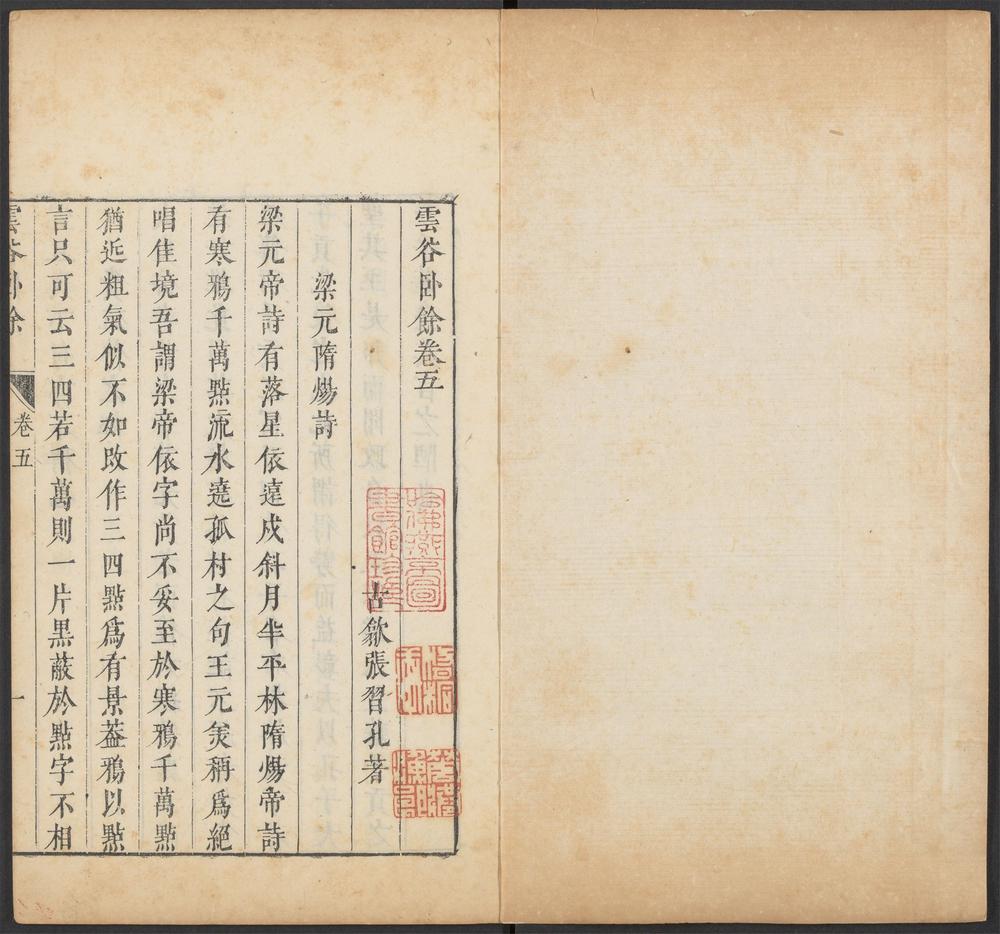 雲谷臥餘卷五
古歙張習孔著
梁元隋煬詩
梁元帝詩有落星依遠戍斜月半平林隋煬帝詩
有寒鴉千萬點流水遶孤村之句王元美稱爲絕
唱佳境吾謂梁帝依字尚不妥至於寒鴉千萬點
猶近粗氣似不如改作三四點爲有景葢鴉以點
言只可云三四若千萬則一片黑蔽於點字不相
雲谷臥餘
卷五
一